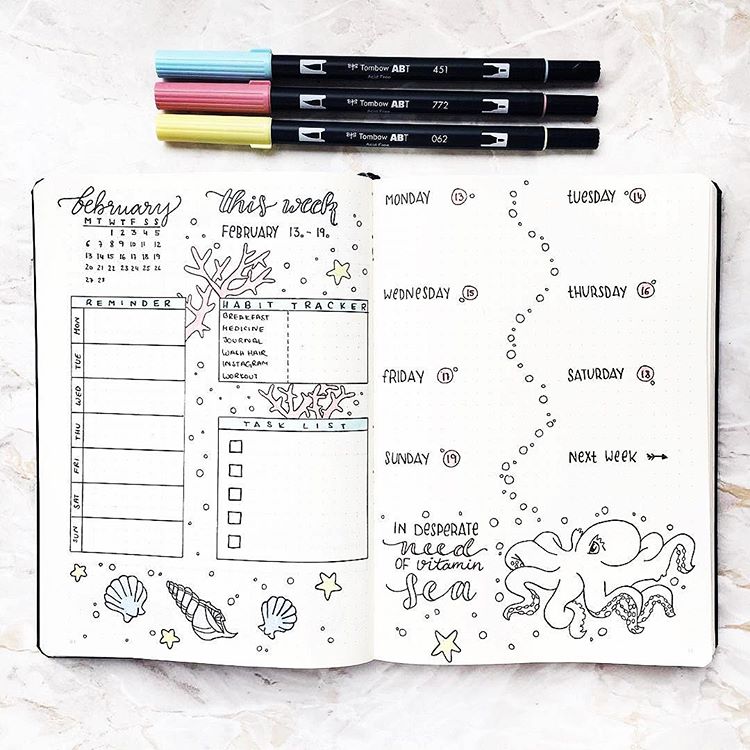 Tombow ABT 451
Acid Free
Tombow ABT 772
Acid Free
Tombow ABT 062
Acid Free
february
M T W T F S S
1 2 3 4 5
6 7 8 9 10 11 12
13 14 15 16 17 18 19
20 21 22 23 24 25 26
27 28
REMINDER
MON
TUE
WED
THU
FRI
SAT
SUN
this week
FEBRUARY 13.-19.
HABIT TRACKER
BREAKFAST
MEDICINE
JOURNAL
WASH HAIR
INSTAGRAM
WORKOUT
TASK LIST
MONDAY 13
TUESDAY 14
WEDNESDAY 15
THURSDAY 16
FRIDAY 17
SATURDAY 18
SUNDAY 19
NEXT WEEK
IN DESPERATE
need
OF VITAMIN
Sea